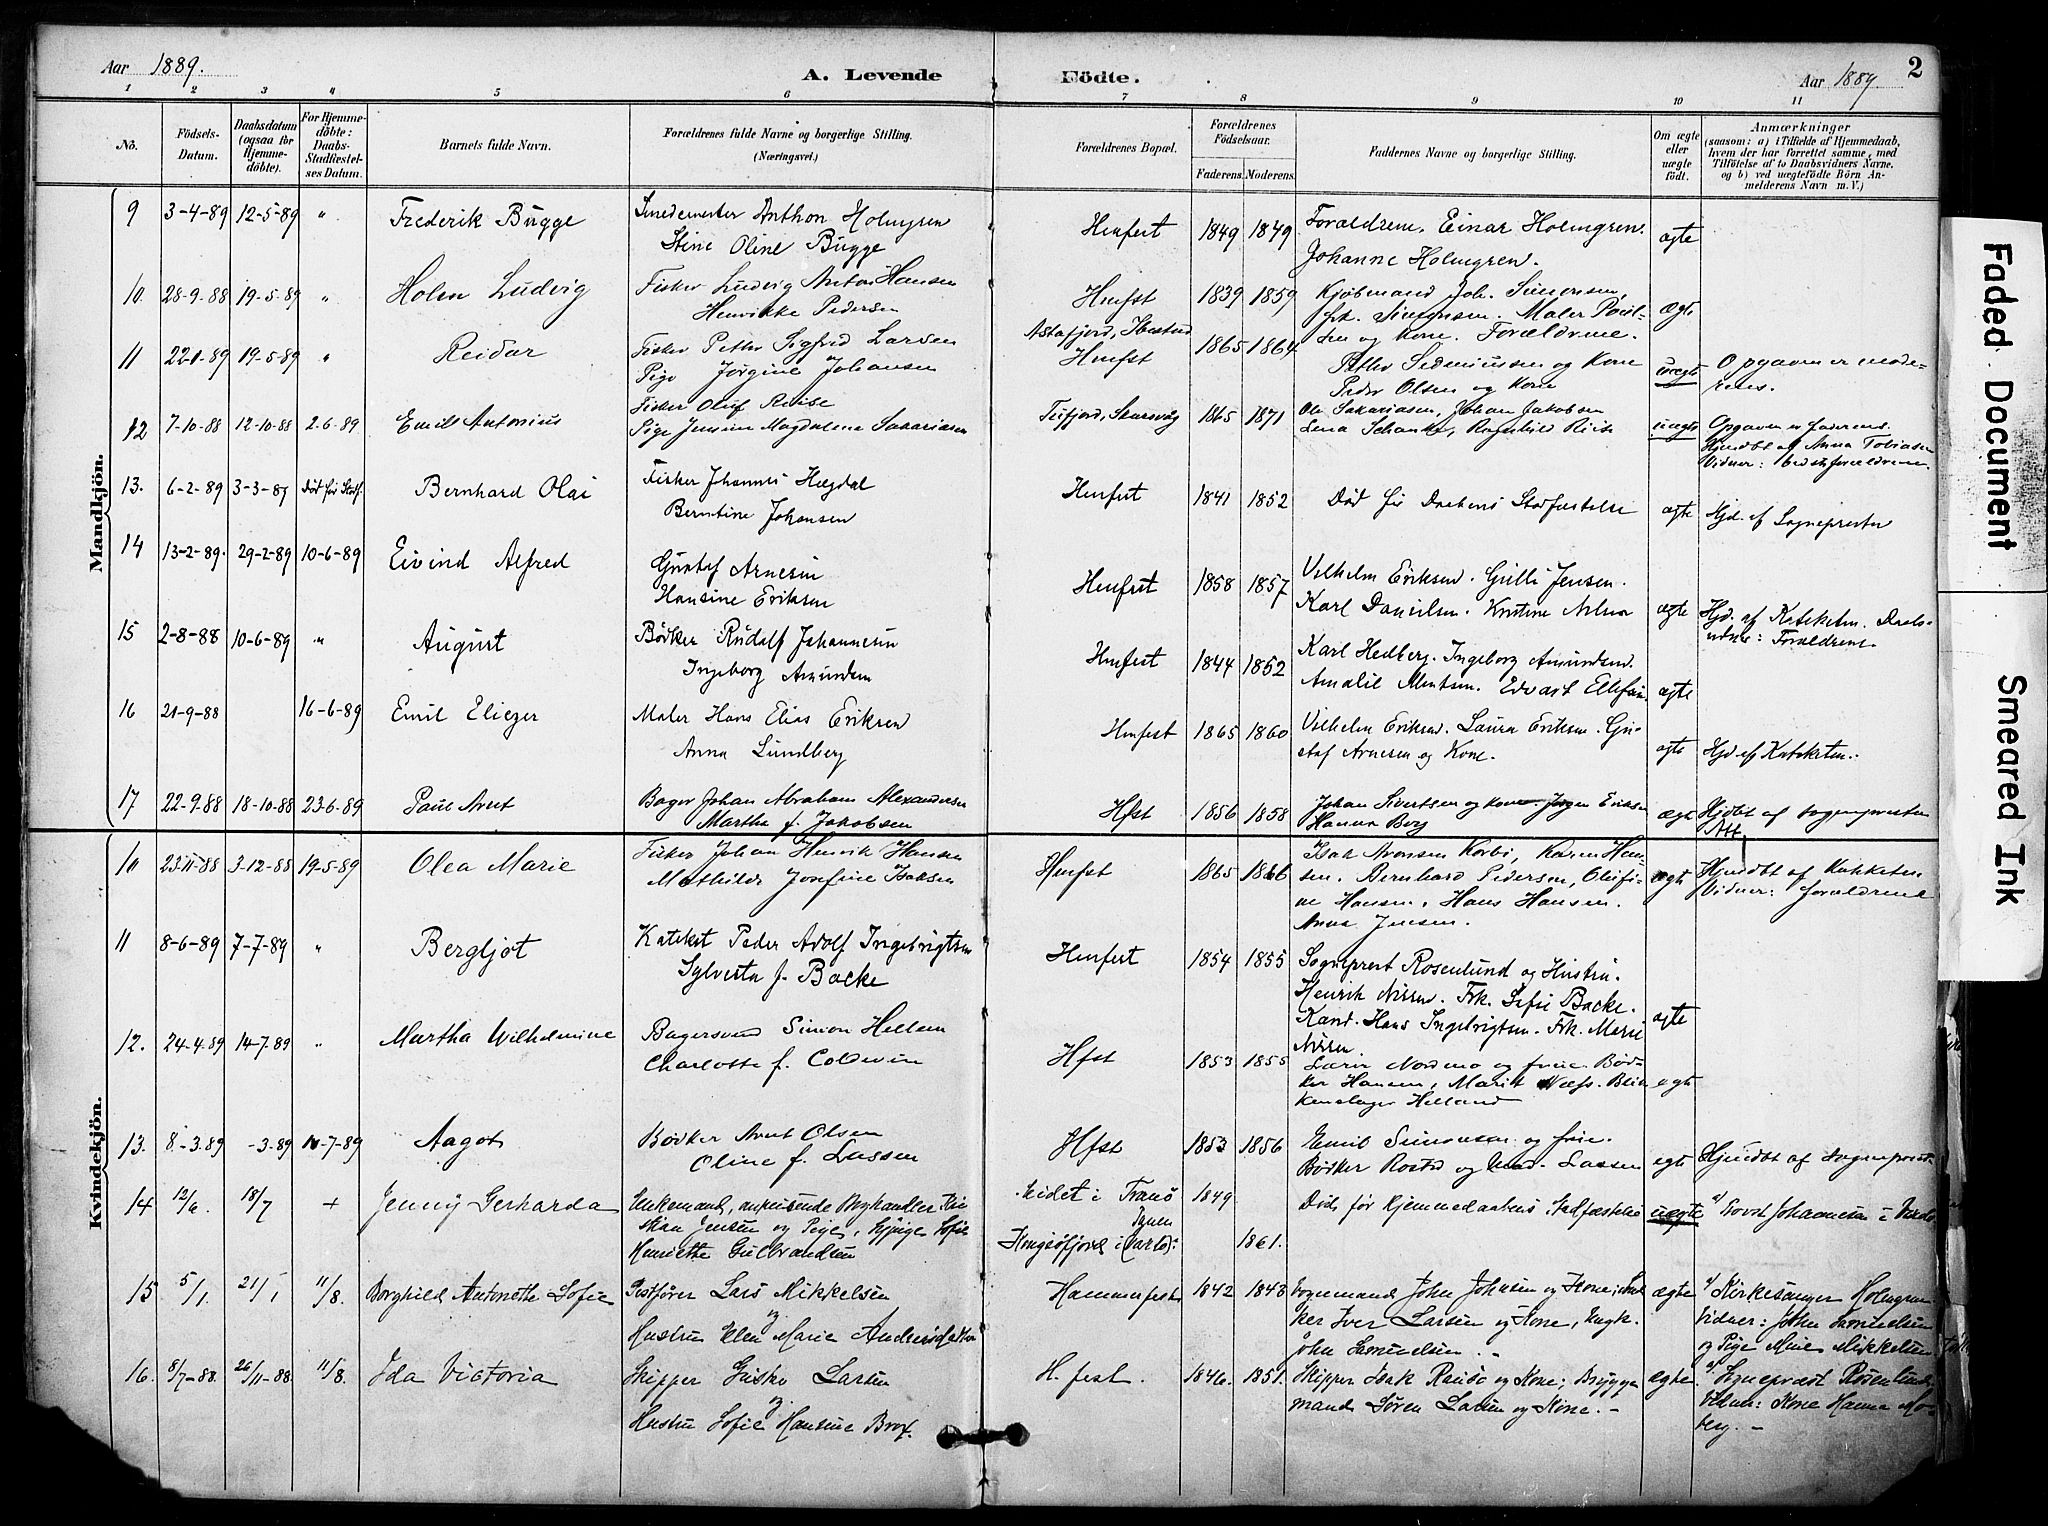 Aar 1889.
A. Levende Födte.
Aar 1889.
2
1 2 3 4 5 6 7 8 9 10 11
No.
Födsels-Datum.
Daabsdatum (ogsaa for Hjemme-döbte).
For Hjemme-döbte: Daabs-Stadfæstel-ses Datum.
Barnets fulde Navn.
Forældrenes fulde Navne og borgerlige Stilling. (Næringsvei.)
Forældrenes Bopæl.
Forældrenes Födselsaar.
Faderens. Moderens.
Faddernes Navne og borgerlige Stilling.
Om ægte eller uægte födt.
Anmærkninger
(saasom: a) i Tilfælde af Hjemmedaab,
hvem der har forrettet samme, med
Tilföielse af to Daabsvidners Navne.
og b) ved uægtefödte Börn An-
melderens Navn m. V.)
Mandkjön.
9 3-4-89 12-5-89 " Frederik Bugge Smedemester Anthon Holmgren
Stine Oline Bugge
Hmfest 1849 1849 Forældrene, Einar Holmgren.
Johanne Holmgren. ægte
10. 28-9-88 19-5-89 " Holm Ludvig Fisker Ludvig Anton Hansen
Henrikke Pedersen
Hmfst 1839 1859 Kjøbmand Joh. Simonsen,
frk. Simonsen. Maler Poul-
sen og Kone. Forældrene. ægte
11 22-1-89 19-5-89 " Reidar Fisker Petter Sigfrid Larsen
Pige Jørgine Johansen
Astafjord, Ibestad
Hmfst 1865 1864 Petter Sedeniussen og Kone
Peder Olsen og Kone uægte Opgaven er mode-
rens.
12 7-10-88 12-10-88 2-6-89 Emil Antonius Fisker Oluf Reise
Pige Jensine Magdalena Sakariasen
Teifjord, Skarsvåg 1865 1871 Ole Sakariasen, Johan Jakobsen
Lena Schanke, Ragnhild uægte Opgaven er faderens.
Hjmdbt af Anna Tobiasen
Vidner: bedsteforældrene.
13. 6-2-89 3-3-89 Død før Stadf. Bernhard Olai Fisker Johannes Hægdal
Berntine Johansen
Hmfest 1841 1852 Død før Daabens Stadfæstelse ægte Hjd. af Sognepresten
14 13-2-89. 29-2-89 10-6-89 Eivind Alfred Gustaf Arnesen
Hansine Eriksen
Hmfest 1858 1857 Vilhelm Eriksen. Gulli Jensen.
Karl Danielsen. Kristine ægte Hjd. af Kateketen. Daabs-
vidner: Forældrene.
15 2-8-88 10-6-89 " August Bødker Rudolf Johannesen
Ingeborg Amundsen
Hmfest 1844 1852 Karl Hedberg. Ingeborg Amundsen.
Amalie Edvart Ellefsen ægte
16 21-9-88 16-6-89 Emil Eliezer Maler Hans Elias Eriksen
Anna Lundberg
Hmfest 1865 1860 Vilhelm Eriksen. Laura Eriksen. Gu-
staf Arnesen og Kone. ægte Hjd. af Kateketen.
17 22-9-88 18-10-88 23-6-89 Paul Avert Bager Johan Abraham Alexandersen
Martha f. Jakobsen
Hfst 1856 1858 Johan Sivertsen og kone. Jørgen Eriksen
Hanna Borg ægte Hjdbt af sognepresten
Att.
Kvindekjön.
10 23-11-88 3-12-88 19-5-89 Olea Marie Fisker Johan Henrik Hansen
Mathilde Josefine Isaksen
Hmfst 1865 1866 Isak Aronsen Karen Han-
sen. Bernhard Pedersen, Olufi-
ne Hansen, Hans Hansen.
Anna Jensen. ægte Hjmdbt af Kateketen
Vidner: forældrene
11 8-6-89 7-7-89 " Bergljot Kateket Peder Adolf Ingebrigtsen
Sylvesta f. Backe
Hmfest 1854 1855 Sogneprest Rosenlund og Hustru.
Henrik Nissen. Frk. Sofie Backe.
Kand. Hans Ingebrigtsen. Frk. Marie
Nissen. ægte
12. 24-4-89 14-7-89 " Martha Wilhelmine Bagersvend Simon Hellem
Charlotte f. Coldevin
Hfst 1853 1855 Lærer Nordmo og frue. Bød-
ker Hansen, Marit Næss. Blik-
kenslager Helland ægte
13. 8-3-89 -3-89 -7-89 Aagot Bødker Avert Olsen
Oline f. Lassen
Hfst 1853 1856 Emil Simonsen og frue.
Bødker og Mad. Lassen ægte Hjmdbt af sognepresten
14 12/6 18/7 + Jenny Gerharda Enkemand, Boghandler Kri-
stian Jensen og Pige, Sofie
Henriette Gulbrandsen
i Tranø 1849
Kongsfjord i (Karlsø): 1861.
Død før hjemmedaabens Stadfæstelse uægte a/ Johannesen i
15 5/1. 21/1 11/8. Borghild Antonette Sofie Postfører Lars Mikkelsen
og
Hustru Ellen Marie
Hammerfest 1842 1843 Vognmand John Johnsen og Kone,
ker Iver Larsen og Kone, Ungk.
John Samuelsen. - ægte a/ Kirkesanger Holmgren
Vidner: John Samuelsen
og Pige Mikkelsen
16. 8/7-88. 26/11-88. 11/8. Ida Victoria Skipper Larsen
og
Hustru Sofie Hansine Brox.
H. fest. 1846. 1851. Skipper Isak og Kone; Brygge-
mand Søren Larsen og Kone. - ægte. a/ Sogneprest Rosenlund
Vidner: Kone Hanna Mo-
berg. -
Faded Document
Smeared Ink